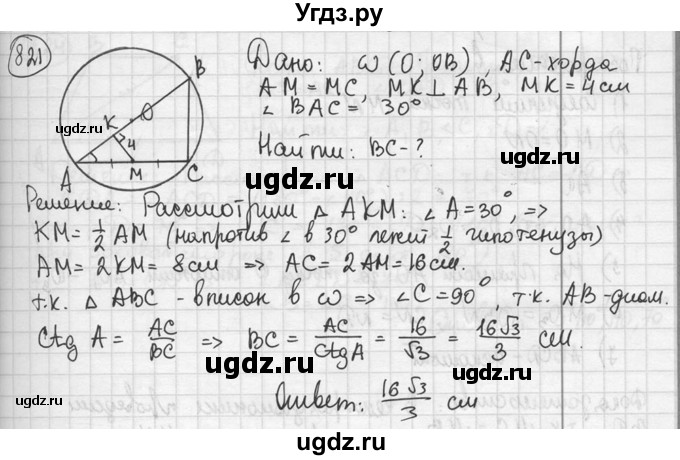 Угдз.ру
821
Дано: ω (O; OB), AC-хорда
AM = MC, MK ⊥ AB, MK = 4 см
∠ BAC = 30°
Найти: BC - ?
B
K
O
4
A
M
C
угдз.ру
Решение: Рассмотрим △ AKM: ∠ A = 30°, =>
KM = 1/2 AM (напротив ∠ в 30° лежит 1/2 гипотенузы)
AM = 2KM = 8 см => AC = 2AM = 16 см.
т.к. △ ABC - вписан в ω => ∠C = 90°, т.к. AB-диам.
Ctg A = AC/BC => BC = AC/Ctg A = 16/√3 = 16√3/3 см.
Ответ: 16√3/3 см
ugdz.ru
ugdz.ru
ugdz.ru
ugdz.ru
ugdz.ru
ugdz.ru
ugdz.ru
ugdz.ru